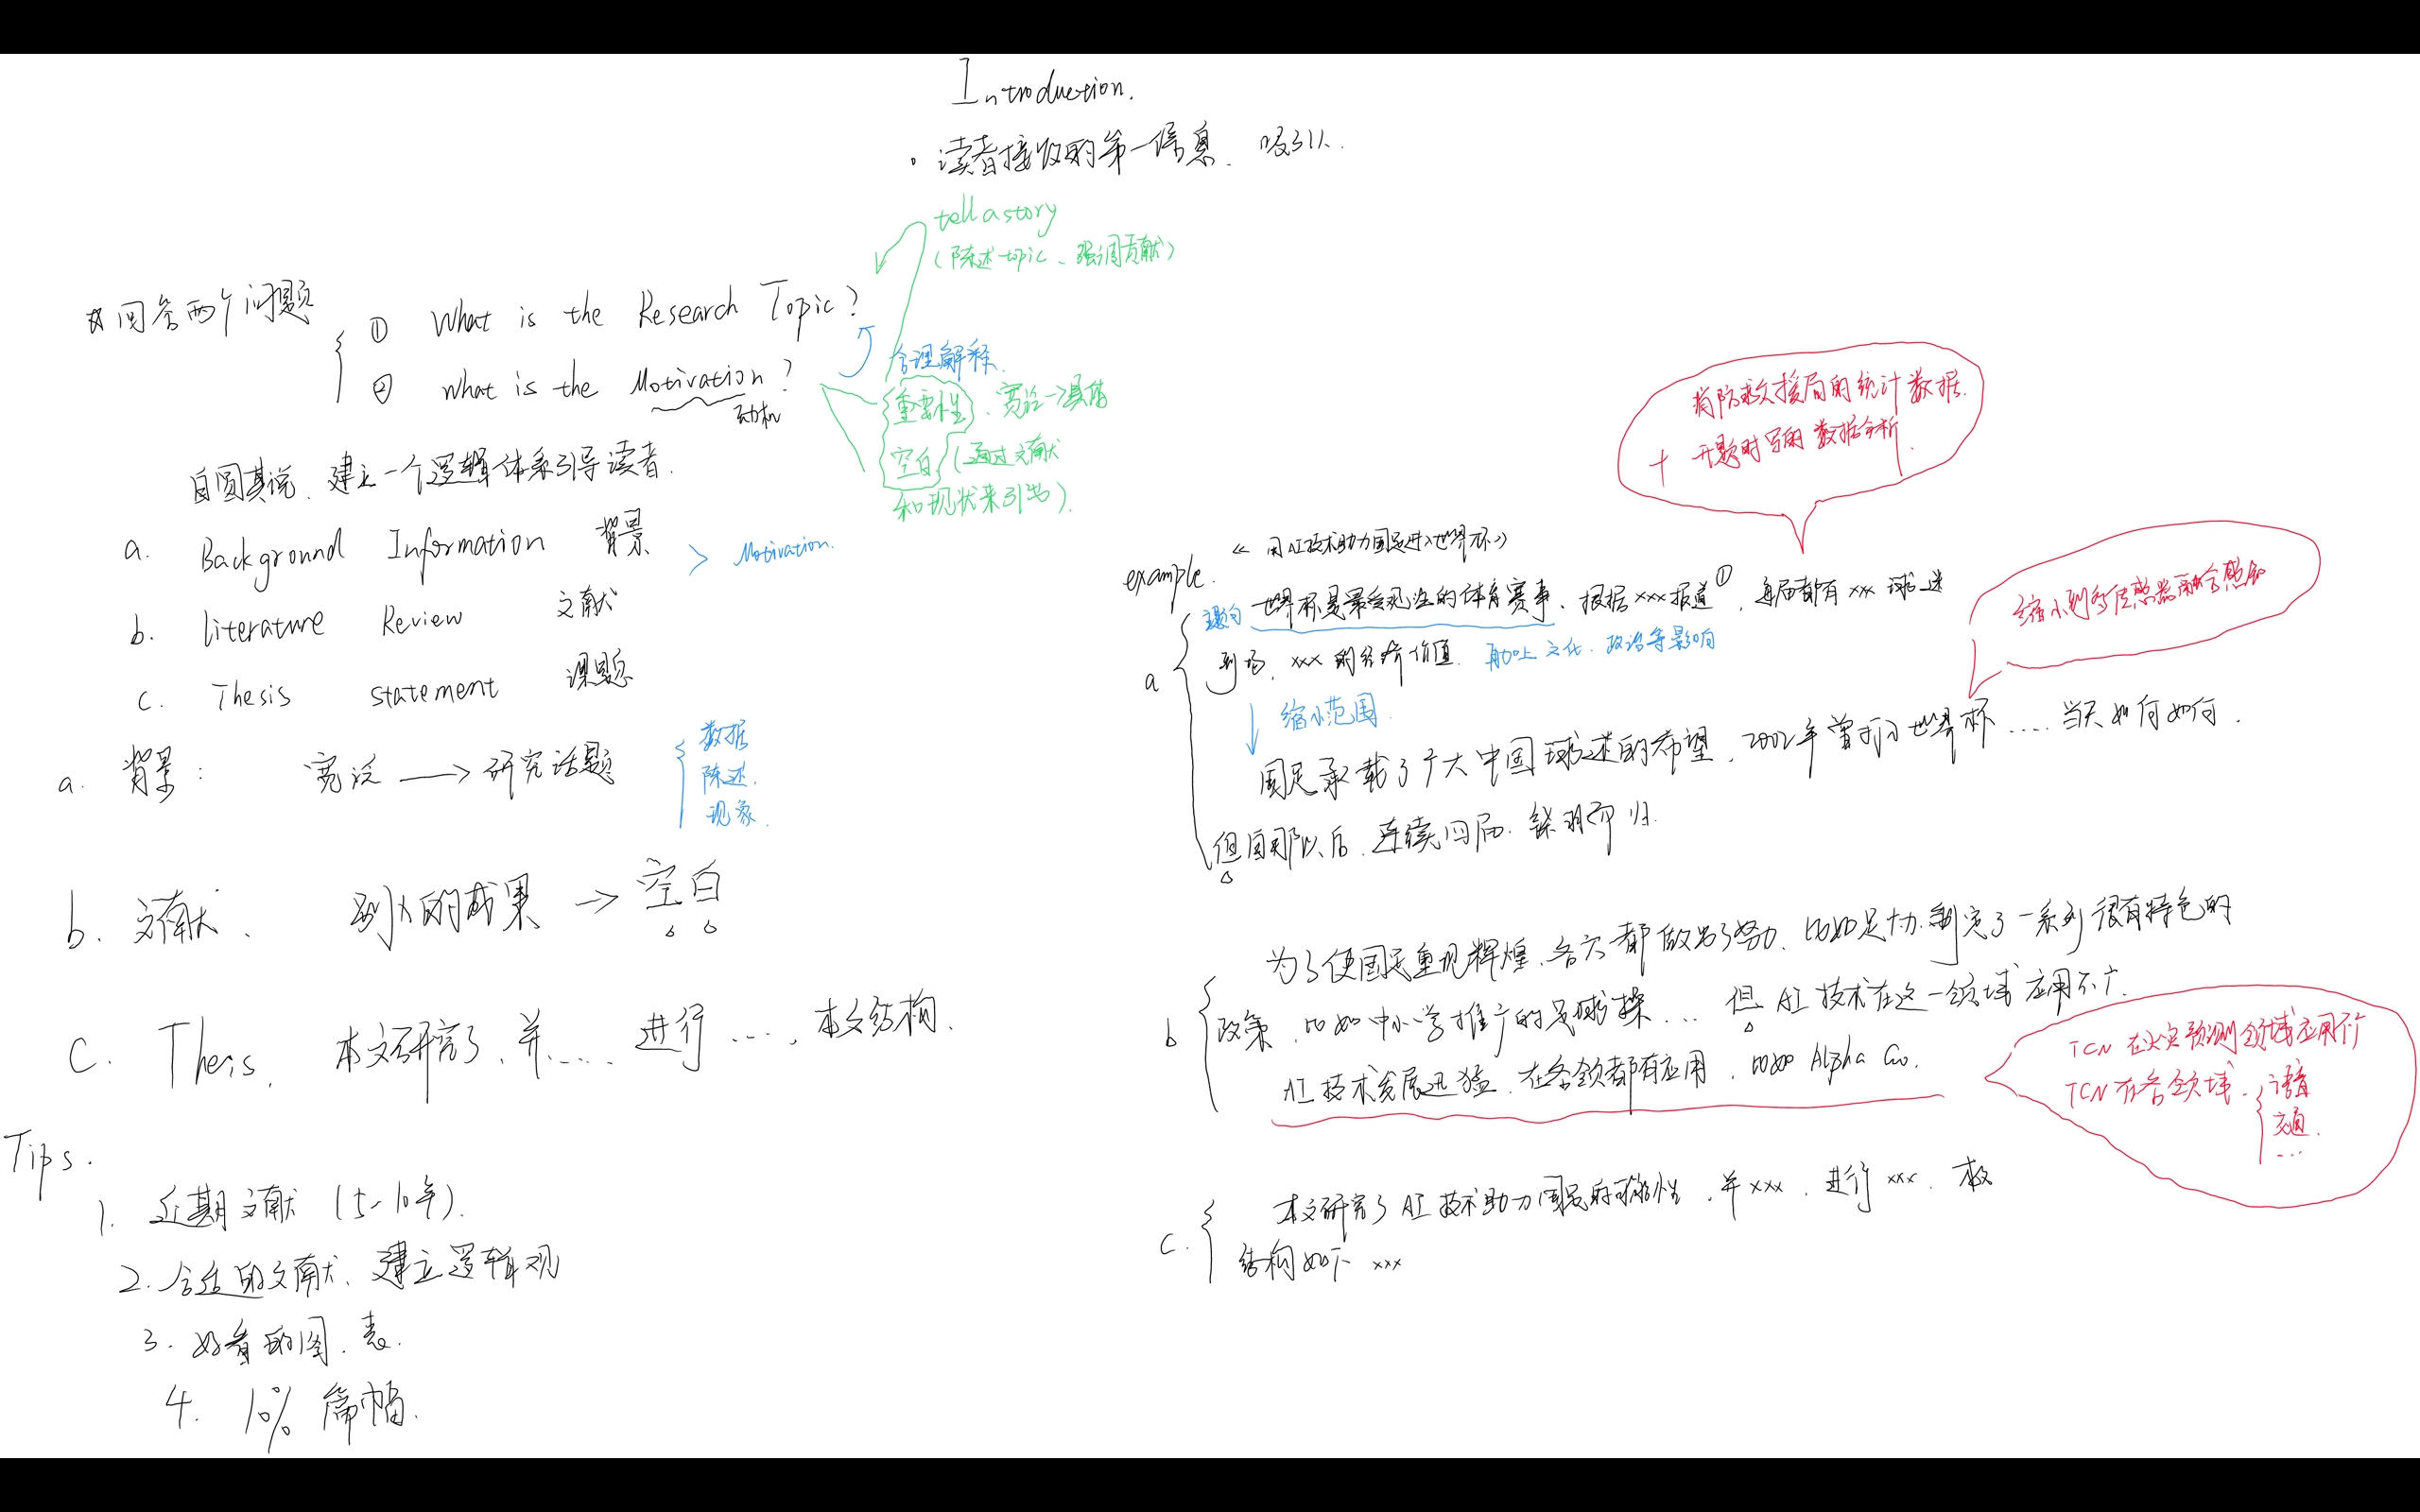 Introduction.
• 读者接收的第一信息、吸引人.
tell a story
(陈述 topic、强调贡献)
回答两个问题
① What is the Research Topic?
② What is the Motivation?
动机
合理解释.
重要性、宽泛→具体
空白 (通过文献
和现状来引出).
自圆其说、建立一个逻辑体系引导读者.
a. Background Information 背景
> Motivation.
b. literature Review 文献
c. Thesis statement 课题
a. 背景: 宽泛 → 研究话题
数据
陈述.
现象.
b. 文献、 别人的成果 → 空白
C. Theis, 本文研究了、并...... 进行 ...., 本文结构.
Tips.
1. 近期文献 (5-10年).
2. 合适的文献、建立逻辑观
3. 好看的图、表.
4. 10% 篇幅.
消防救援局的统计数据.
+ 开题时写的数据分析.
example. 《用AI技术助力国足进入世界杯》
a
世界杯是最受观注的体育赛事、根据xxx报道①, 每届都有xxx球迷
到场, xxx的经济价值. 再加上文化、政治等影响
缩小范围.
缩小到多传感器融合感知
国足承载了广大中国球迷的希望, 2002年曾打入世界杯..... 当天如何如何.
但自那以后, 连续四届, 铩羽而归.
b
为了使国足重现辉煌、各方都做出了努力、比如足协, 制定了一系列很有特色的
政策, 比如中小学推广的足球操... 但AI技术在这一领域应用不广.
AI技术发展迅猛、在各领都有应用, 比如 Alpha Go.
TCN 在火灾预测领域应用不广
TCN 在各领域.
语音
交通.
...
c.
本文研究了AI技术助力国足的可能性, 并xxx, 进行xxx、本文
结构如下 xxx